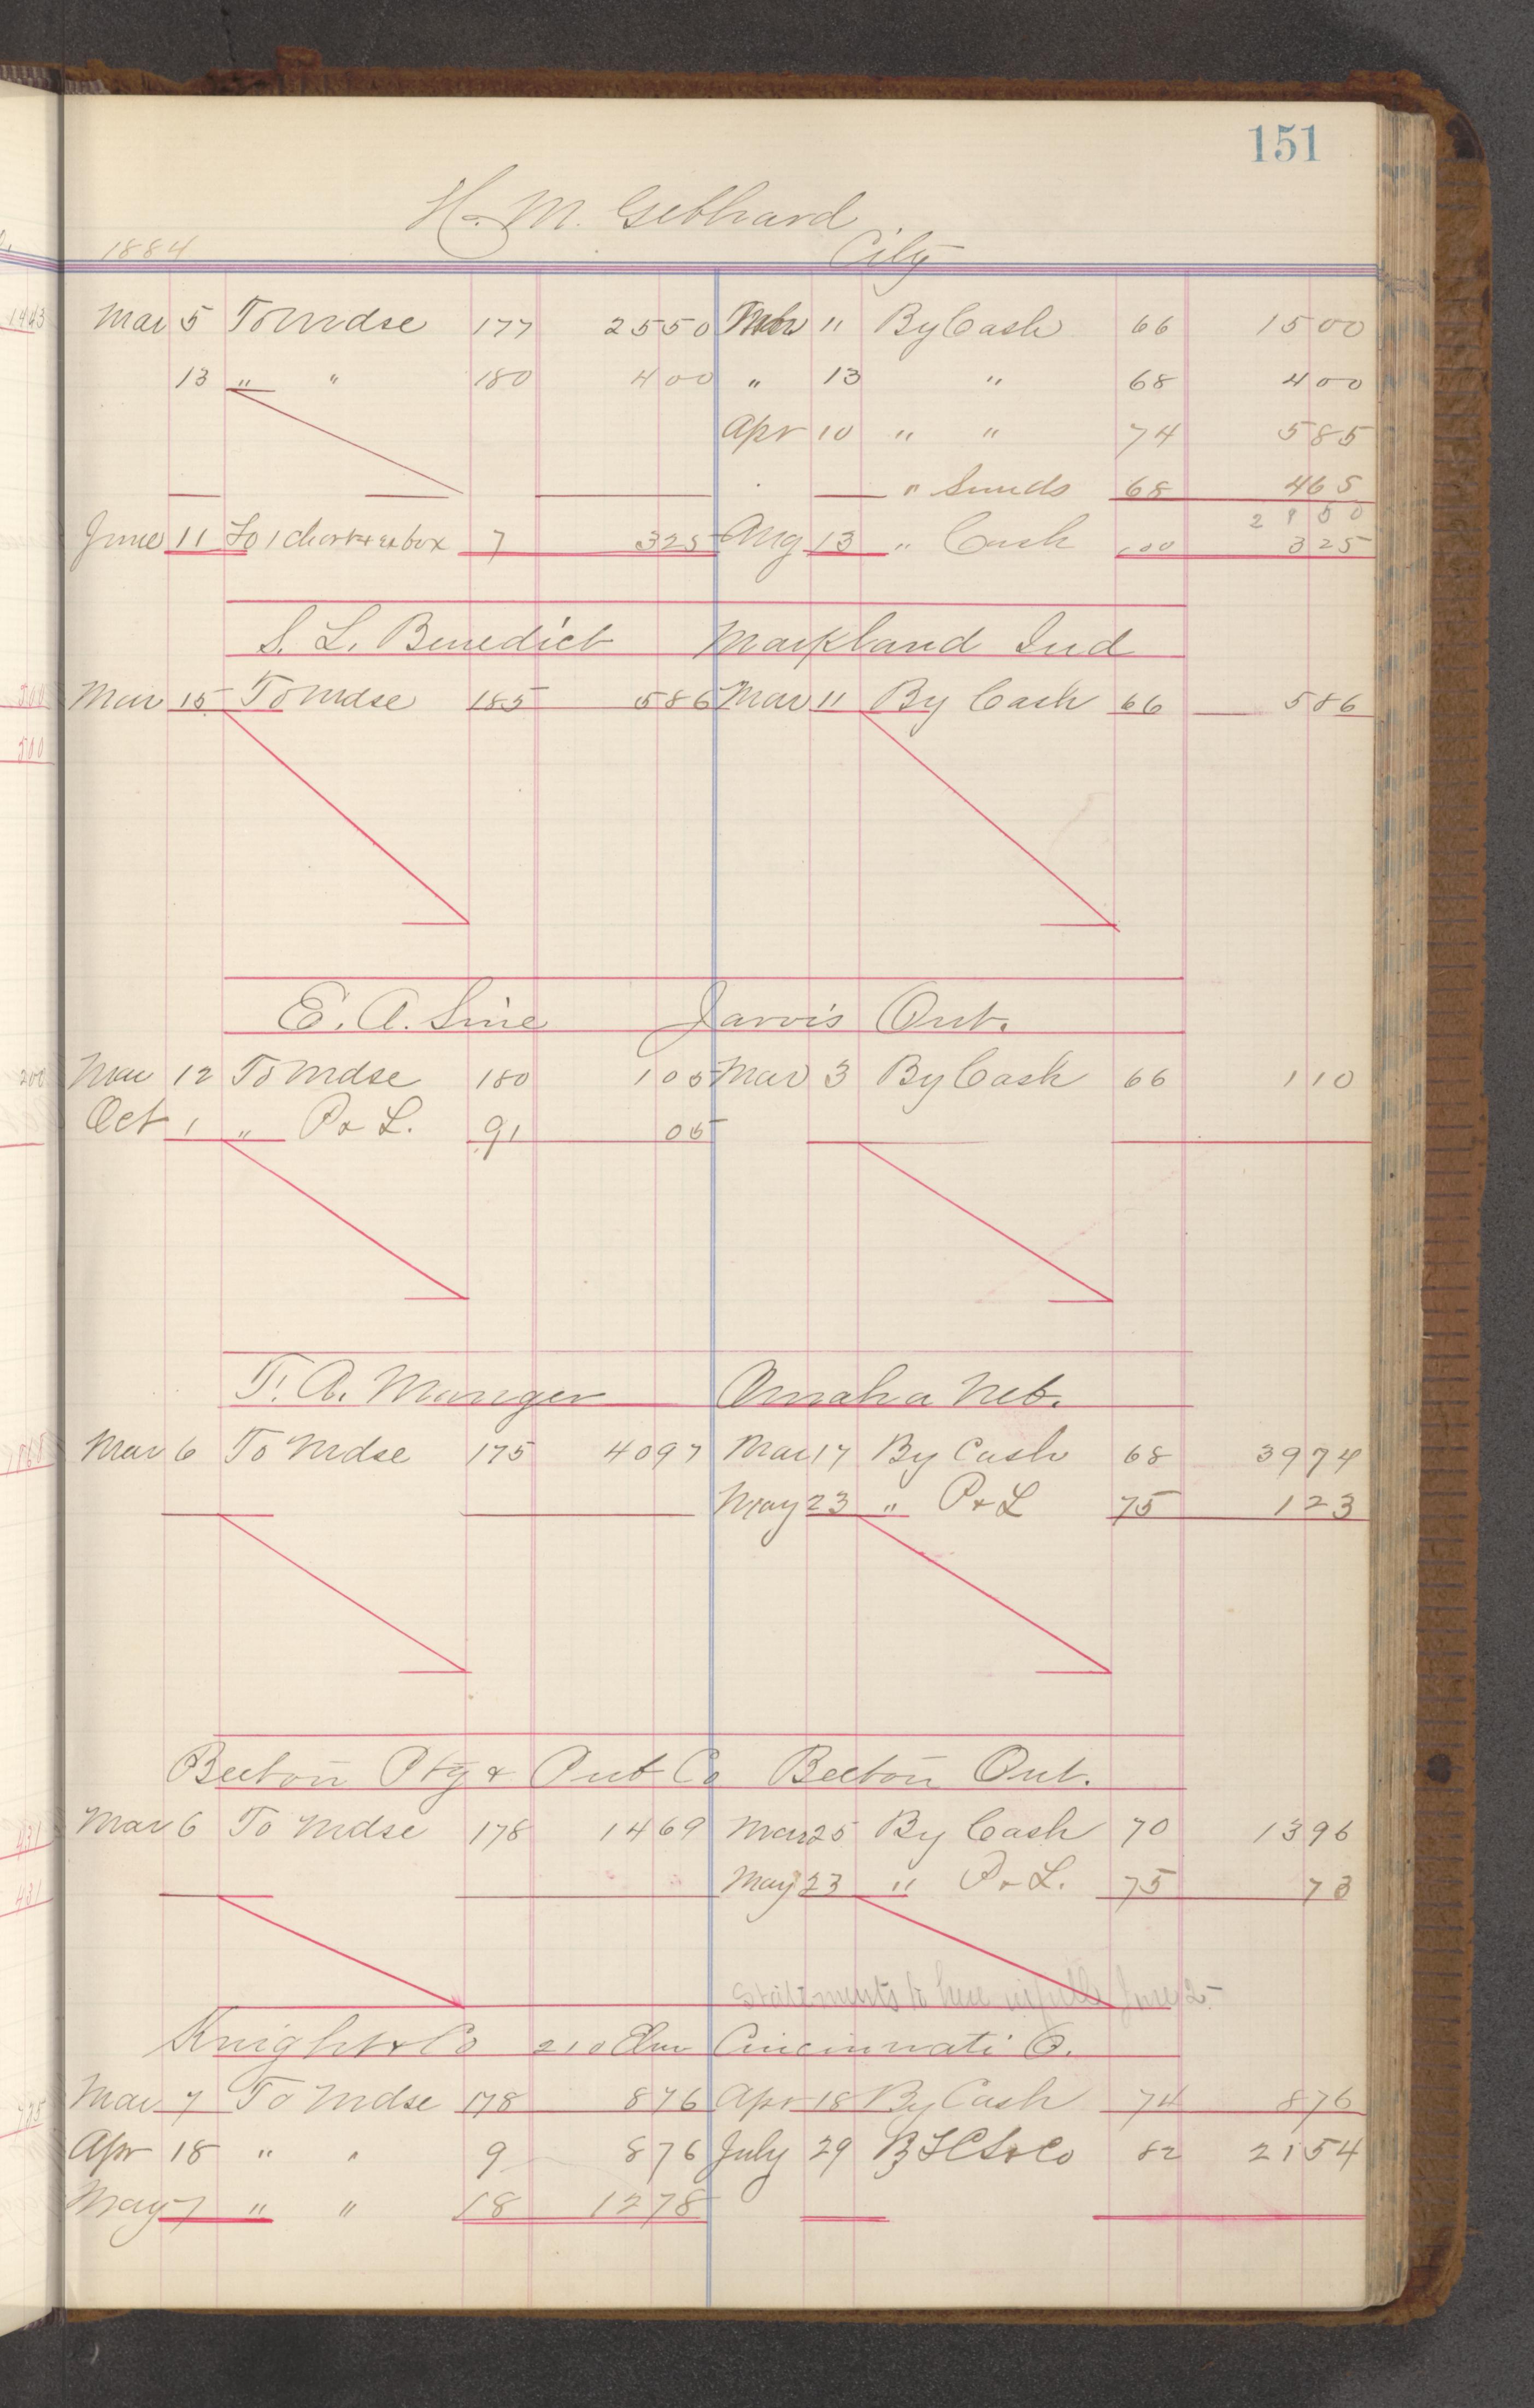 151
H. M. Gebhard
1884 City
Mar 5 To Mdse 177 25 50 Mar 11 By Cash 66 15 00
13 " " 180 4 00 " 13 " 68 4 00
Apr 10 " " 74 5 85
" Sunds 68 4 65
29 50
June 11 To 1 box 7 3 25 Aug 13 " Cash 100 3 25
S. L. Benedict Markland Ind
Mar 15 To Mdse 185 5 86 Mar 11 By Cash 66 5 86
E. A. Sine Jarvis Ont.
Mar 12 To Mdse 180 1 05 Mar 3 By Cash 66 1 10
Oct 1 " P & L. 91 05
T. A. Munger Omaha Neb.
Mar 6 To Mdse 175 40 97 Mar 17 By Cash 68 39 74
May 23 " P & L 75 1 23
Beeton Ptg & Pub Co Beeton Ont.
Mar 6 To Mdse 178 14 69 Mar 25 By Cash 70 13 96
May 23 " P & L. 75 73
Statements to here June 2
Knight & Co 210 Elm Cincinnati O.
Mar 7 To Mdse 178 8 76 Apr 18 By Cash 74 8 76
Apr 18 " " 9 8 76 July 29 82 21 54
May 7 " " 18 12 78